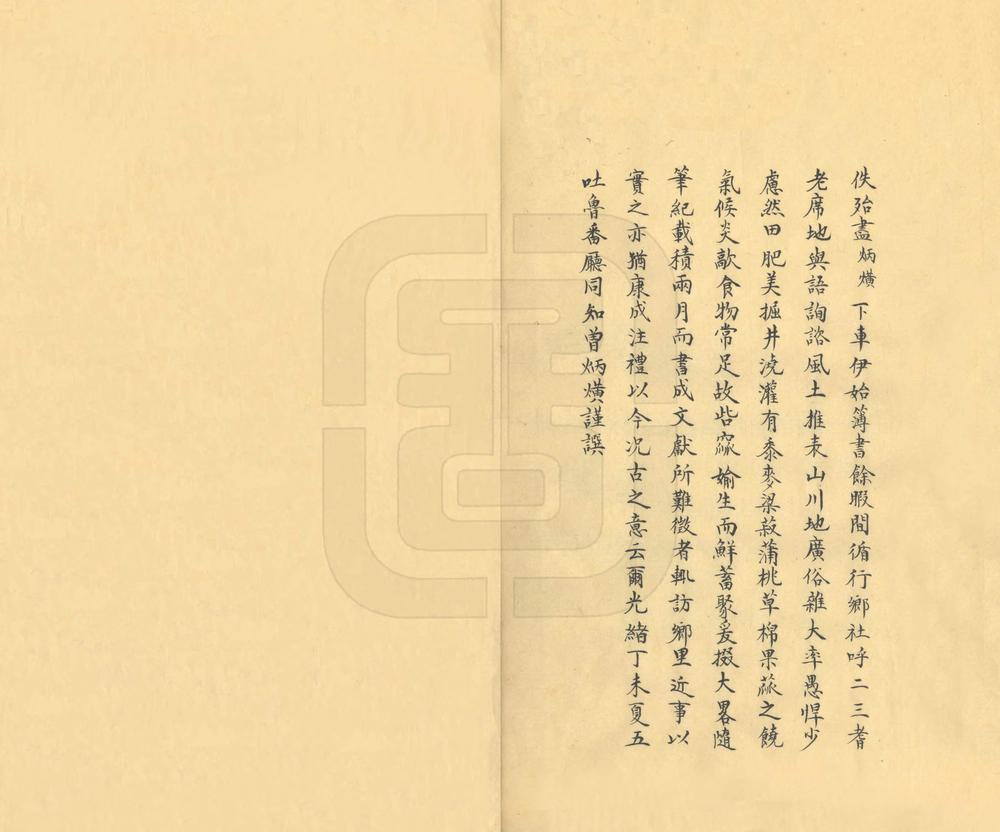 佚殆盡炳熿下車伊始簿書餘暇間循行鄉社呼二三耆
老席地與語詢諮風土推表山川地廣俗雜大率愚悍少
慮然田肥美掘井澆灌有黍麥梁菽蒲桃草棉果蓏之饒
氣候炎歊食物常足故呰窳媮生而鮮蓄聚爰掇大畧隨
筆紀載積兩月而書成文獻所難徵者輒訪鄉里近事以
實之亦猶康成注禮以今况古之意云爾光緒丁未夏五
吐魯番廳同知曾炳熿謹譔